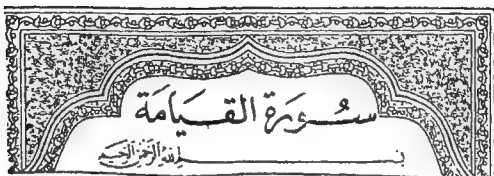 سُورَة القِيَامَة
بِسْمِ اللَّهِ الرَّحْمَنِ الرَّحِيمِ